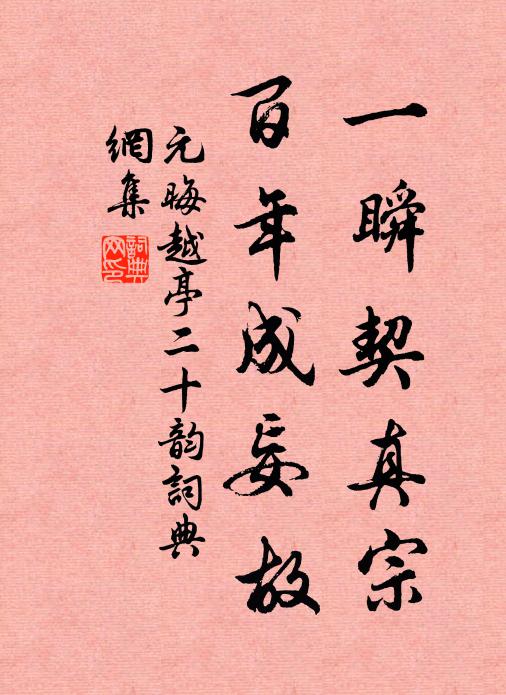 一瞬契真宗
百年成妄故
元晦越亭二十韵詞典
網集
詞典
网印